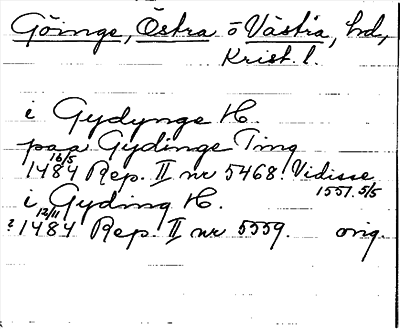 Göinge, Östra o Västra, hd,
Krist. l.
i Gydynge H.
paa Gydinge Ting
1484 16/5 Rep. II nr 5468. Vidisse
1551. 5/5
i Gyding H.
? 1484 12/11 Rep. II nr 5559. orig.